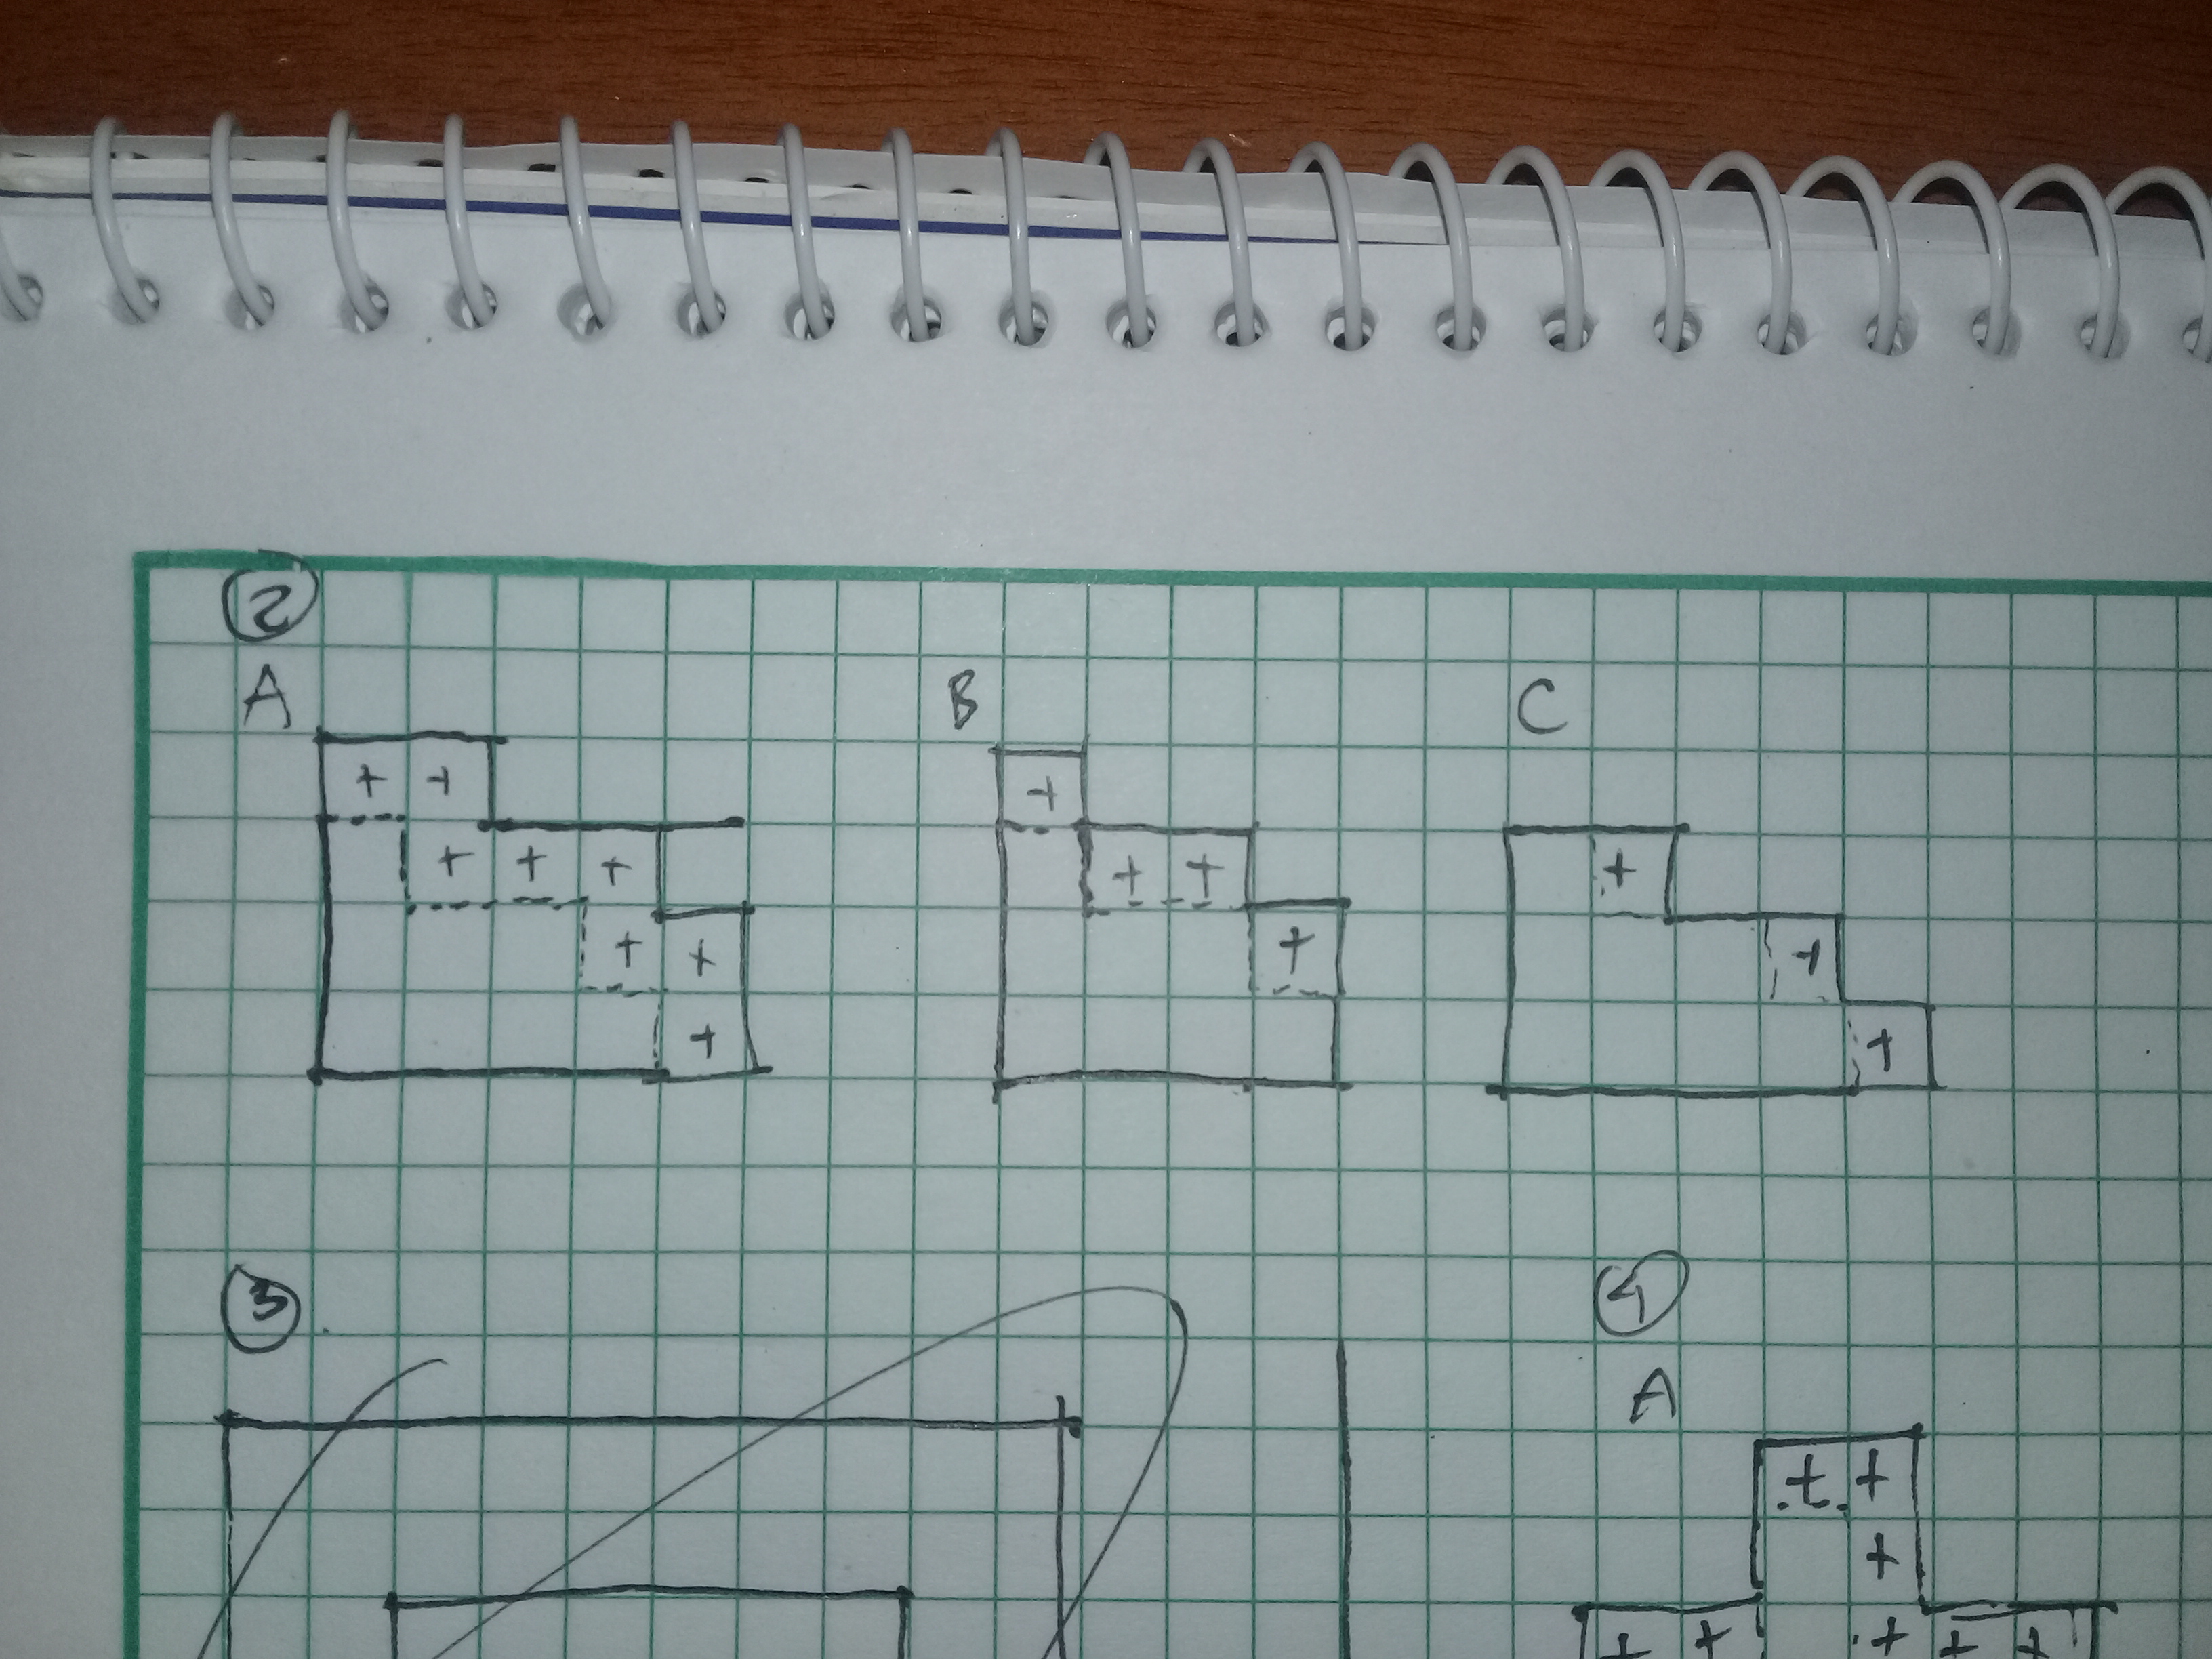 ②
A B C
+ + +
+ + + + + +
+ + + +
+ +
③
A
+ +
+
+ + + + +